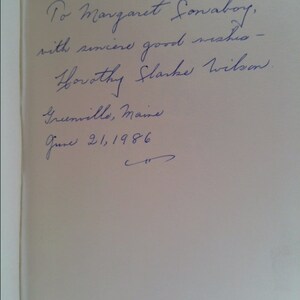 To Margaret
with sincere good wishes –
Dorothy Clarke Wilson
Greenville, Maine
June 21, 1986